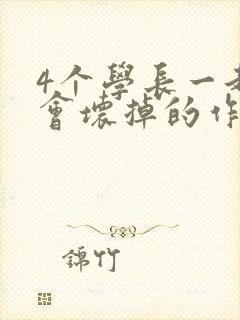 4个學長一
會壞掉的作
錦竹